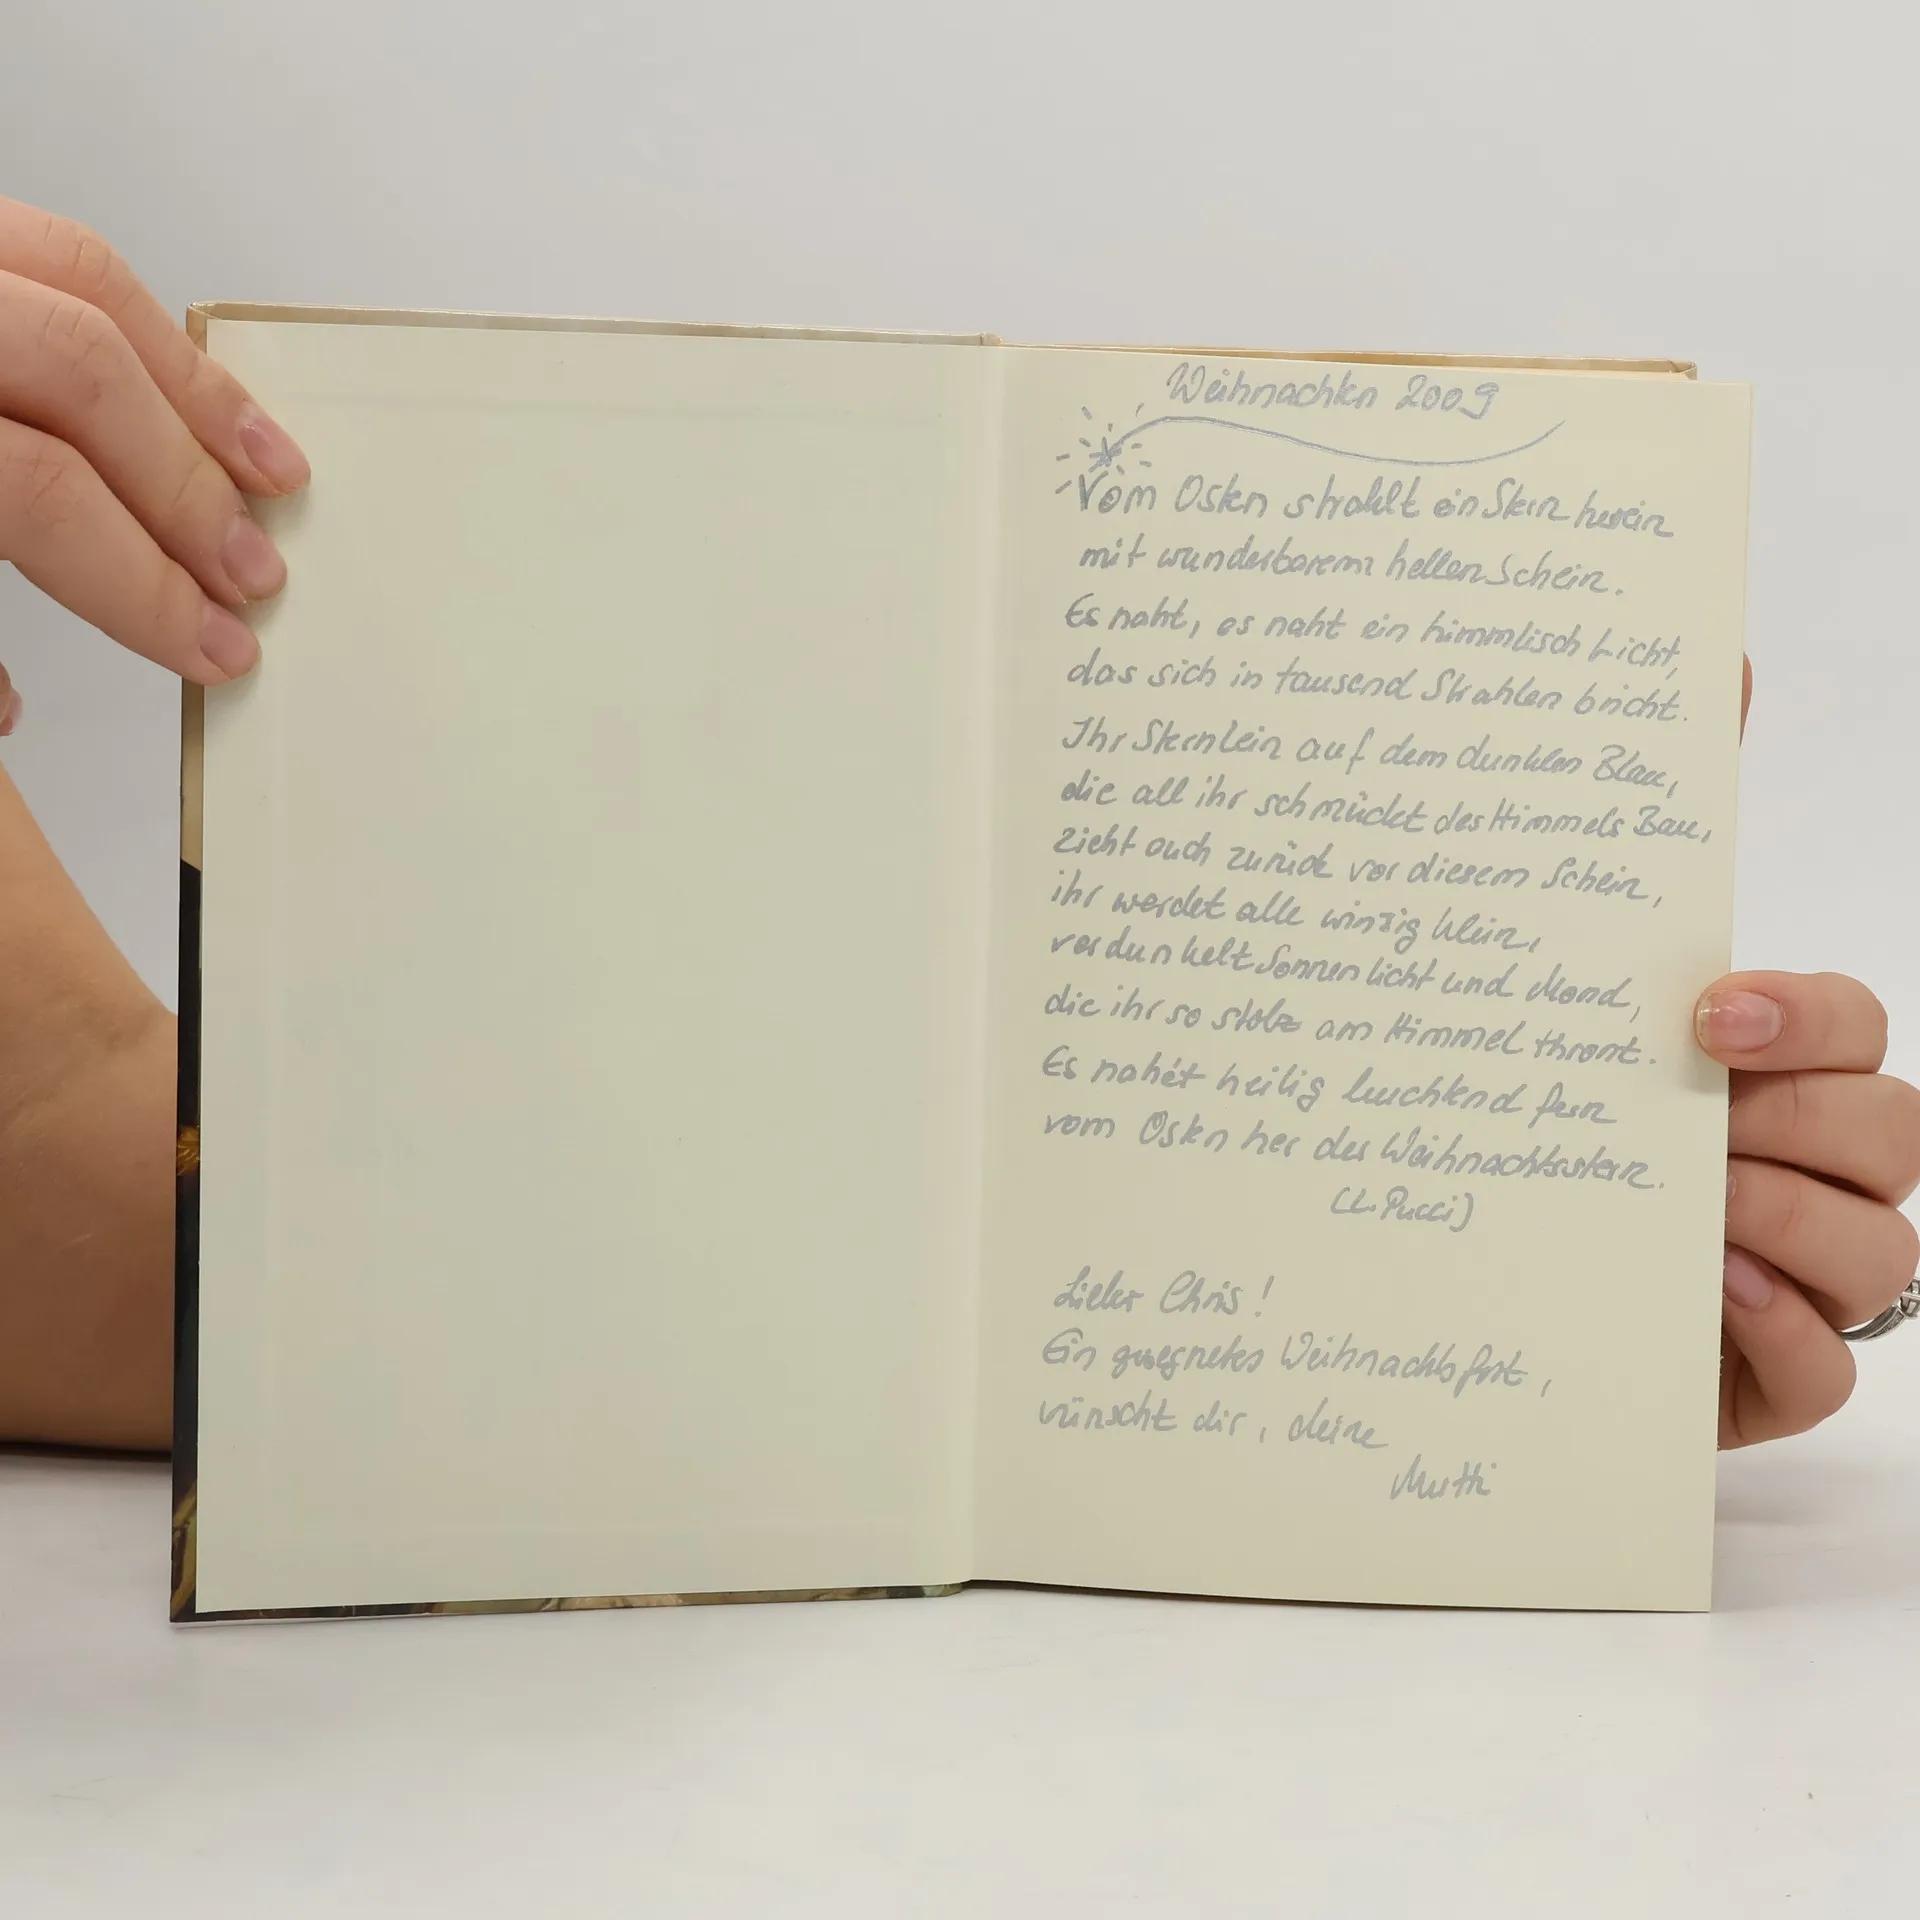 Weihnachten 2009
Vom Osten strahlt ein Stern herein
mit wunderbarem hellen Schein.
Es naht, es naht ein himmlisch Licht,
das sich in tausend Strahlen bricht.
Ihr Sternlein auf dem dunklen Blau,
die all ihr schmückt des Himmels Bau,
zieht euch zurück vor diesem Schein,
ihr werdet alle winzig klein,
verdunkelt Sonnenlicht und Mond,
die ihr so stolz am Himmel thront.
Es nahet heilig leuchtend fern
vom Osten her der Weihnachtsstern.
(L. Pucci)
Lieber Chris!
Ein gesegnetes Weihnachtsfest,
wünscht dir, deine
Mutti